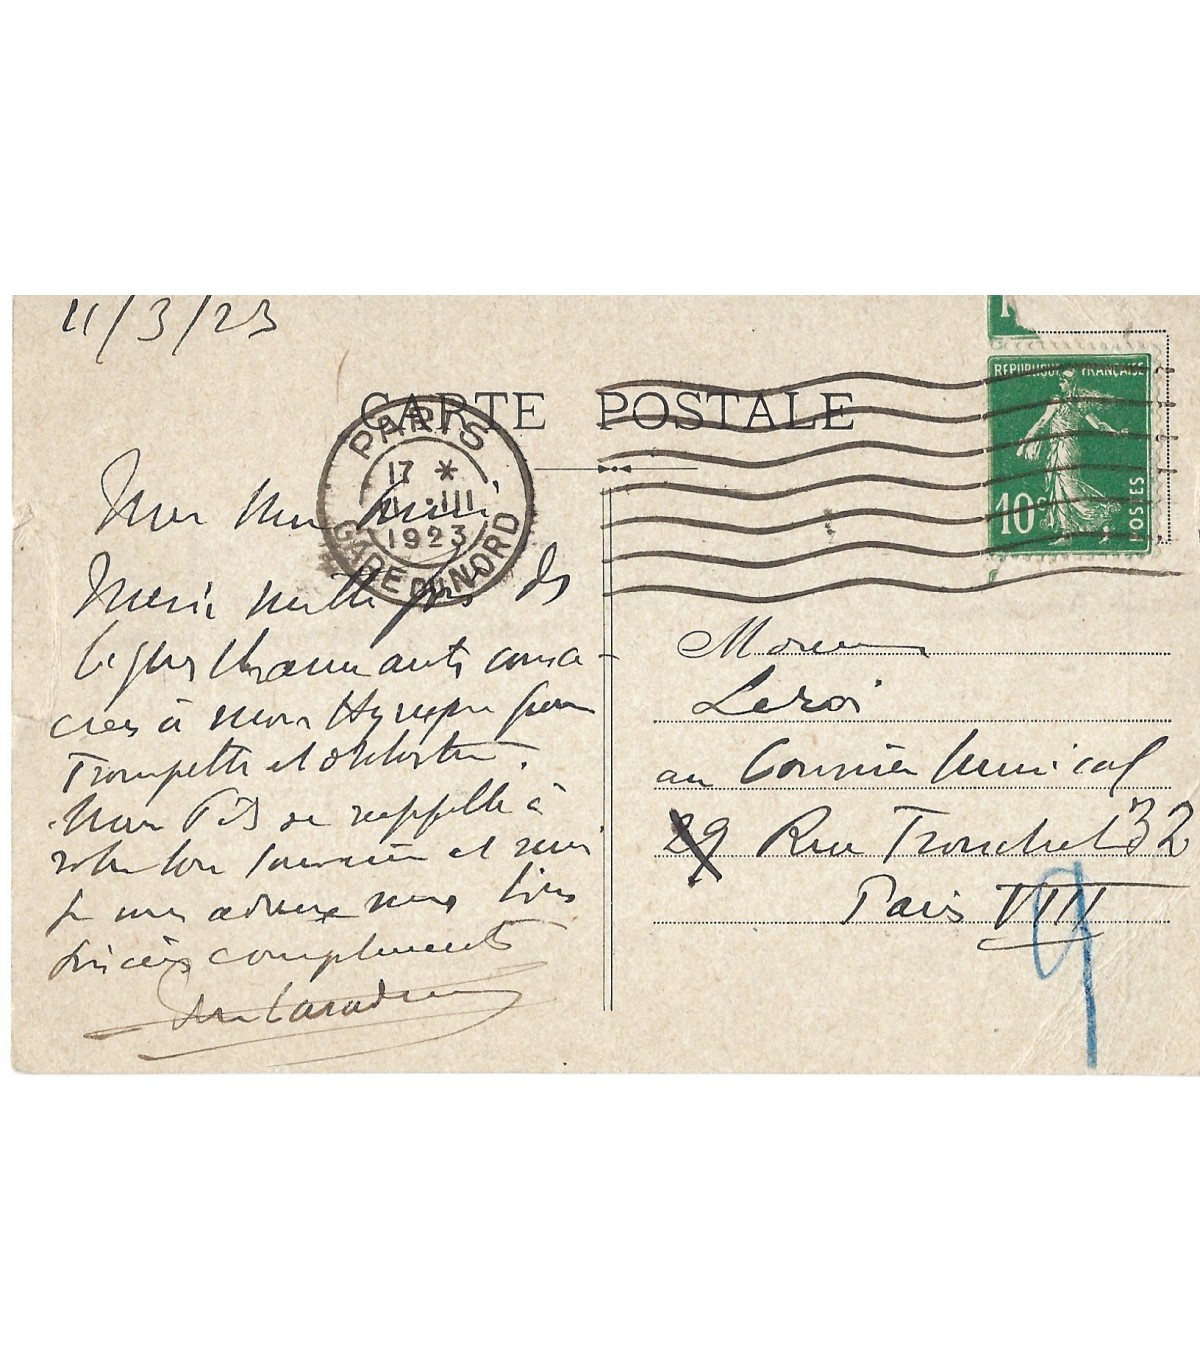 11/3/23
CARTE POSTALE
PARIS
17 *
11 · III
1923
GARE DU NORD
REPUBLIQUE FRANÇAISE
10c
POSTES
Mon
Merci mille fois des
lignes charmantes consa-
crées à mon
Trompette et Orchestre.
Mon se rappelle à
votre bon souvenir et moi
je vous adresse mes plus
sincères compliments
Monsieur
Leroi
au Courrier Musical
29 Rue Tronchet 32
Paris VIII
9